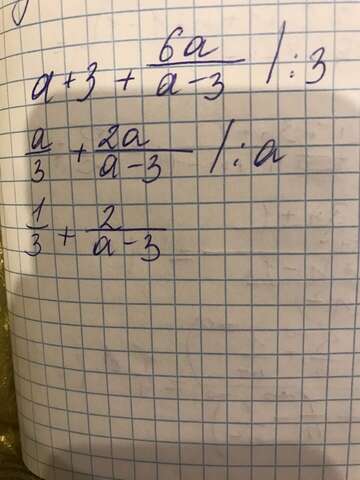 a+3 + 6a/(a-3) /:3
a/3 + 2a/(a-3) /:a
1/3 + 2/(a-3)